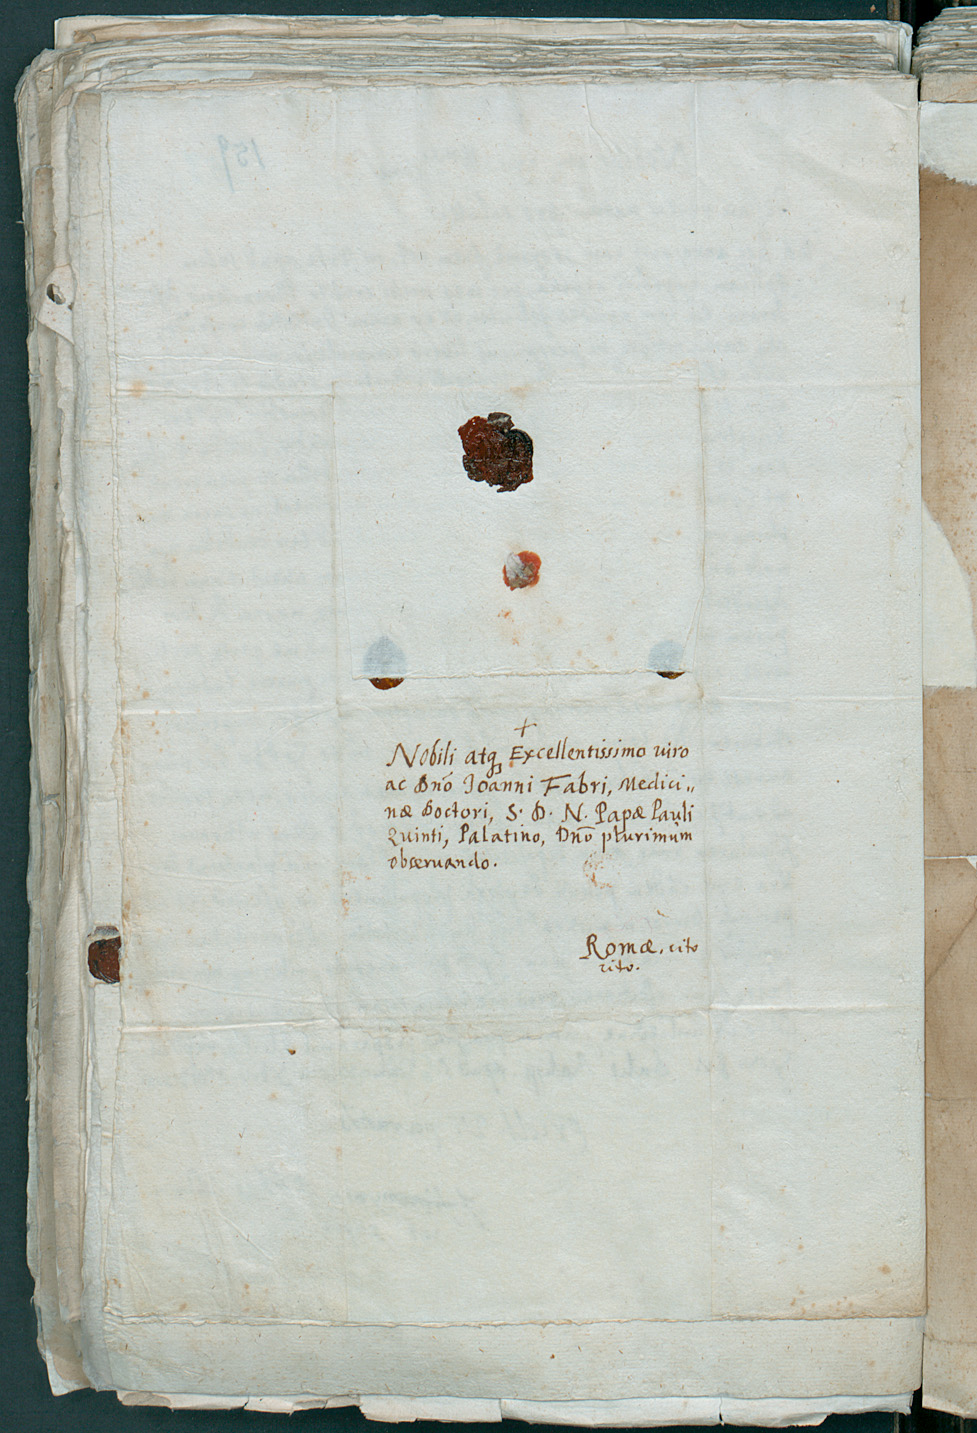 +
Nobili atq Excellentissimo uiro
ac Dño Ioanni Fabri, Medici„
næ Doctori, S. D. N. Papæ Pauli
Quinti, Palatino, Dño plurimùm
obseruando.
Romæ. cito
cito.